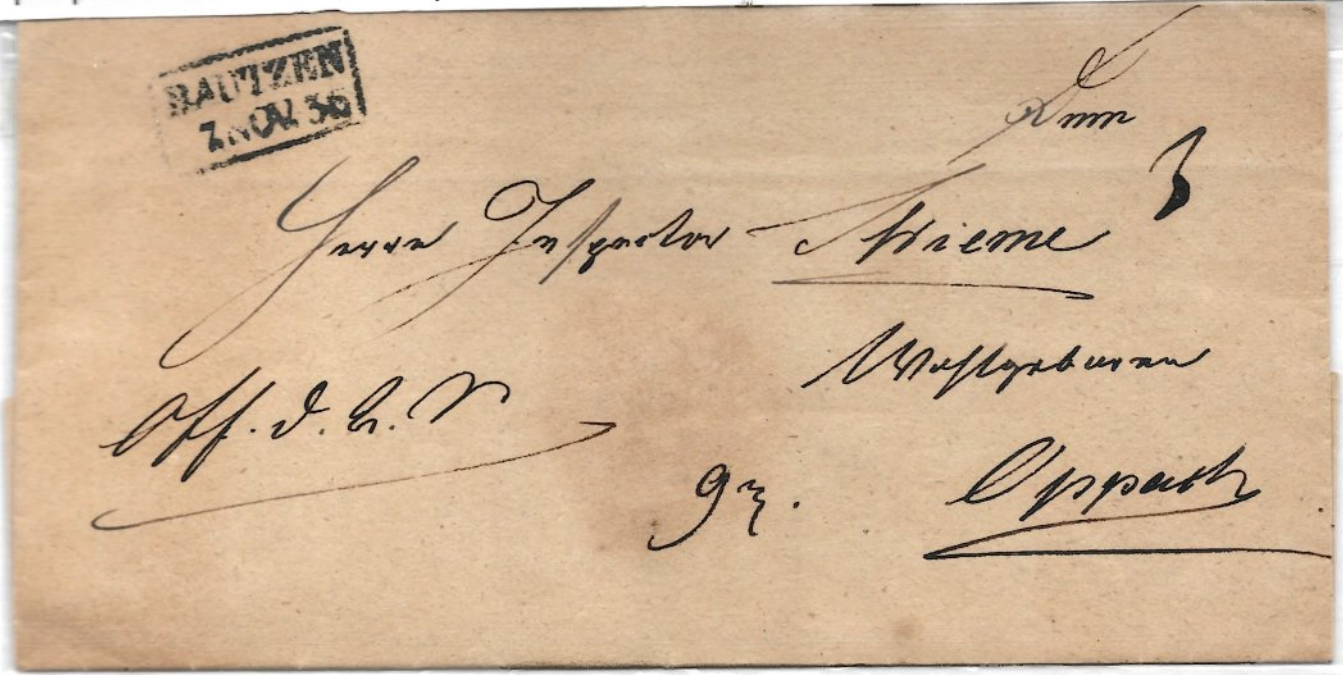 BAUTZEN
7 NOV. 36
Dem
Herrn Inspector Thieme
Wohlgeboren
Off. d. L. V.
Oppach